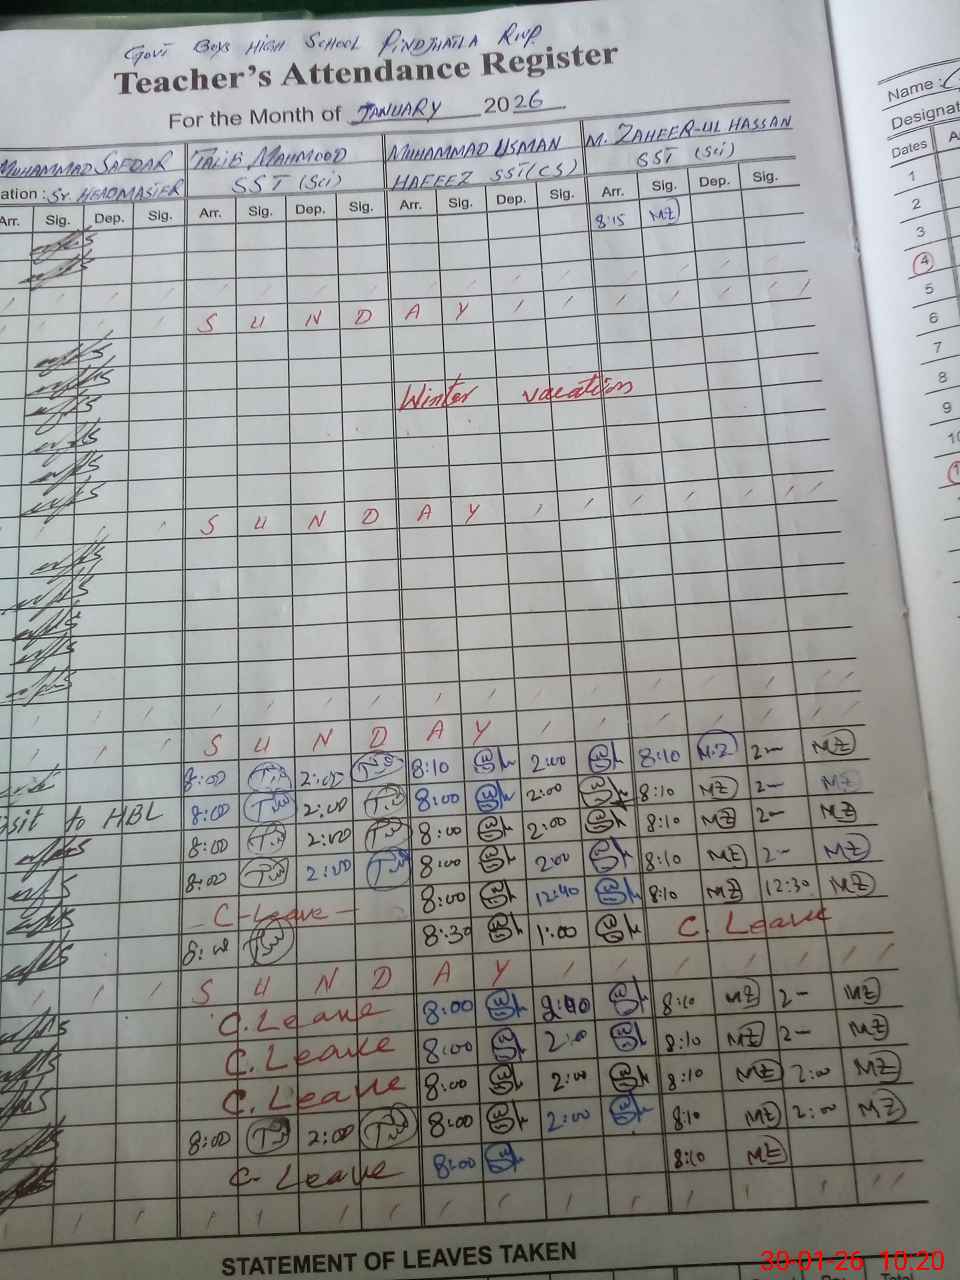 GOVT BOYS HIGH SCHOOL PINDJHATLA RWP.
Teacher's Attendance Register
For the Month of JANUARY 2026
MUHAMMAD SAFDAR TALIB MAHMOOD MUHAMMAD USMAN M. ZAHEER-UL HASSAN
ation : Sr. HEADMASTER SST (Sci) HAFEEZ SST(CS) SST (Sci)
Arr. Sig. Dep. Sig. Arr. Sig. Dep. Sig. Arr. Sig. Dep. Sig. Arr. Sig. Dep. Sig.
8:15 MZ
S U N D A Y
Winter vacation
S U N D A Y
S U N D A Y
8:00 2:00 8:10 2:00 8:10 MZ 2- MZ
visit to HBL 8:00 2:00 8:00 2:00 8:10 MZ 2- MZ
8:00 2:00 8:00 2:00 8:10 MZ 2- MZ
8:00 2:00 8:00 2:00 8:10 MZ 2- MZ
C-Leave 8:00 12:40 8:10 MZ 12:30 MZ
8:00 8:30 1:00 C. Leave
S U N D A Y
C. Leave 8:00 8:10 MZ 2- MZ
C. Leave 8:00 2:00 8:10 MZ 2- MZ
C. Leave 8:00 2:00 8:10 MZ 2:00 MZ
8:00 2:00 8:00 2:00 8:10 MZ 2:00 MZ
C. Leave 8:00 8:10 MZ
STATEMENT OF LEAVES TAKEN
Name :
Designat
Dates
1
2
3
4
5
6
7
8
9
10
30-01-26 10:20